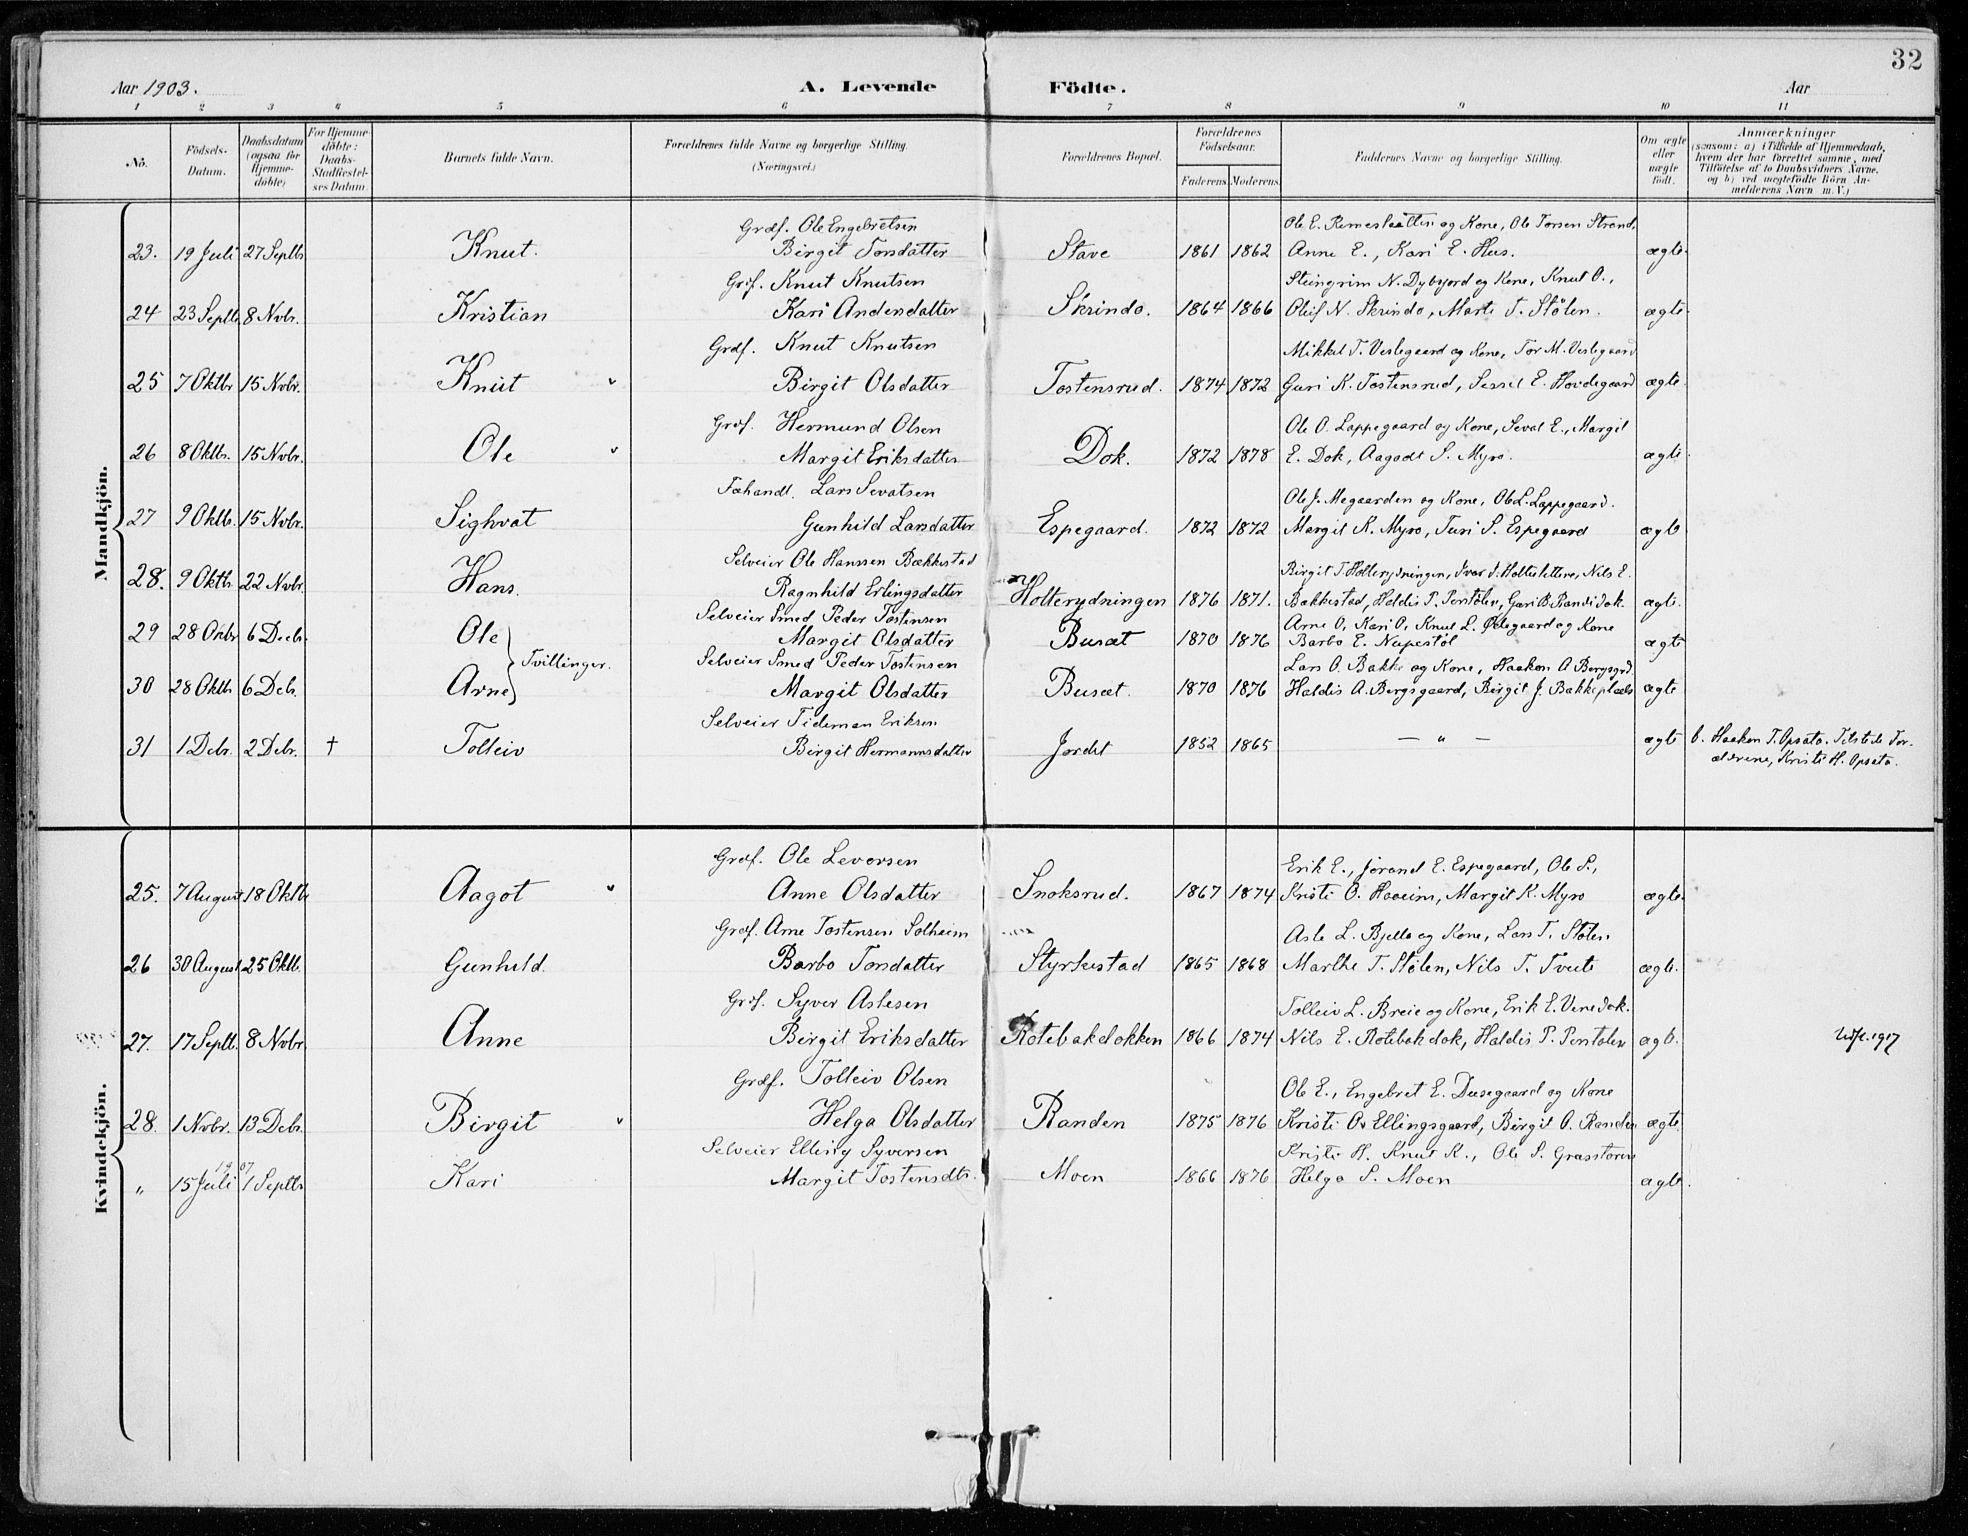 32
Aar 1903. A. Levende Födte. Aar
1 2 3 4 5 6 7 8 9 10 11
No. Födsels-Datum. Daabsdatum (ogsaa for Hjemmedöbte) For Hjemmedöbte: Daabs-Stadfæstelses Datum. Barnets fulde Navn. Forældrenes fulde Navne og borgerlige Stilling. (Næringsvei.) Forældrenes Bopæl. Forældrenes Födselsaar. Faderens. Moderens. Faddernes Navne og borgerlige Stilling. Om ægte eller uægte födt. Anmærkninger (saasom: a) i Tilfælde af Hjemmedaab, hvem der har forrettet samme, med Tilföielse af to Daabsvidners Navne, og b) ved uægtefödte Börn Anmelderens Navn m. V.)
Mandkjön.
Grdf. Ole Engebretsen Ole E. Remesletten og Kone, Ole Torsen Strand,
23. 19 Juli 27 Septbr Knut. Birgit Torsdatter Stave 1861 1862 Anne E., Kari E. Hus. ægte.
Grdf. Knut Knutsen Steingrim N. Dybsjord og Kone, Knut O.,
24 23 Septbr 8 Novbr. Kristian Kari Andersdatter Skrindo. 1864 1866 Oleif N. Skrindo, Marte T. Stölen. ægte.
Grdf. Knut Knutsen Mikkel T. Veslegaard og Kone, Tor M. Veslegaard
25 7 Oktbr 15 Novbr. Knut Birgit Olsdatter Tostensrud. 1874 1872 Guri K. Tostensrud, Sessel E. Hovdegaard ægte.
Grdf. Hermund Olsen Ole O. Lappegaard og Kone, Seval E., Margit
26 8 Oktbr. 15 Novbr. Ole Margit Eriksdatter Dok. 1872 1878 E. Dok, Aagodt S. Myro. ægte.
Fæhandl. Lars Sevatsen Ole J. Megaarden og Kone, Ole L. Lappegaard.
27 9 Oktb. 15 Novbr. Sighvat Gunhild Larsdatter Espegaard. 1872 1872 Margit K. Myro, Turi S. Espegaard ægte
Selveier Ole Hanssen Bakkestad Birgit T. Holterydningen, Ivar J. Holteslettene, Nils E.
28. 9 Oktbr. 22 Novbr Hans. Ragnhild Erlingsdatter Holterydningen 1876 1871. Bakkestad, Haldis P. Perstölen, Guri B. Randi dok. ægte.
Selveier Smed Peder Tostensen Arne O, Kari O, Knut L. Ødegaard og Kone
29 28 Oktbr 6 Decbr. Ole Margit Olsdatter Busæt 1870 1876 Barbo E. Nupestöl ægte
Tvillinger.
Selveier Smed Peder Tostensen Lars O. Bakke og Kone, Haakon A Bergsgrd.
30 28 Oktbr 6 Debr. Arne Margit Olsdatter Busæt. 1870 1876 Haldis A. Bergsgaard, Birgit J. Bakkeplads ægte
Selveier Tideman Eriksen
31 1 Debr. 2 Debr. † Tolleiv Birgit Hermannsdatter Jordet 1852 1865 — " — ægte b. Haaken T. Opsata. Tilstede Forældrene, Kristi H. Opsata.
Kvindekjön.
Grdf. Ole Levorsen Erik E., Jørand E. Espegaard, Ole S.,
25. 7 August 18 Oktbr Aagot Anne Olsdatter Snoksrud. 1867 1874 Kristi O. Haaeim, Margit K. Myro ægte.
Grdf. Arne Tostensen Solheim Asle L. Bjella og Kone, Lars T. Stølen
26 30 August 25 Oktb. Gunhild. Barbo Torsdatter Styrkestad 1865 1868 Marthe T. Stølen, Nils T. Tveito ægte.
Grdf. Syver Aslesen Tolleiv L. Breie og Kone, Erik E. Venedok.
27. 17 Septbr. 8 Novbr. Anne Birgit Eriksdatter Rotebakdokken 1866 1874 Nils E. Rotebakdok, Haldis P. Perstølen ægte. Udf. 1917
Grdf. Tolleiv Olsen Ole E., Engebret E. Dusegaard og Kone
28. 1 Novbr. 13 Debr. Birgit Helga Olsdatter Randen 1875 1876 Kristi O. Ellingsgaard, Birgit O. Randen ægte.
Selveier Elling Syversen Kristi H. Knut K., Ole S. Grasstoren
" 15 Juli 1907 1 Septbr Kari Margit Tostensdtr. Moen 1866 1876 Helga S. Moen ægte.